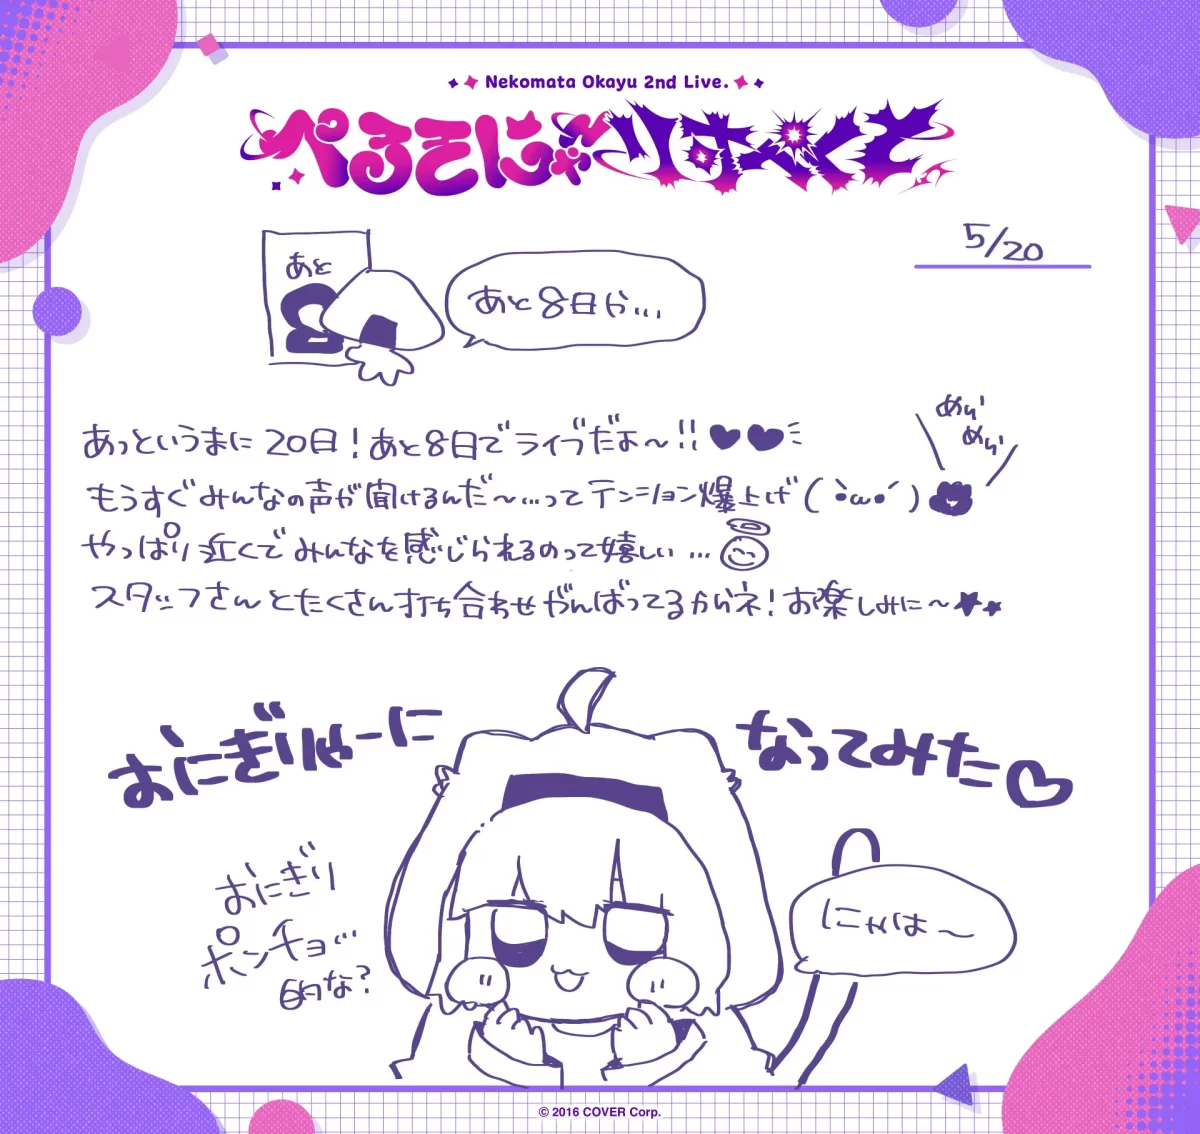 Nekomata Okayu 2nd Live.
ぺるそにゃ〜りすぺくと
5/20
あと
8
あと8日や...
めらっ
めらっ
あっというまに20日！あと8日でライブだよ〜!!
もうすぐみんなの声が聞けるんだ〜...ってテンション爆上げ(｀•ω•´)
やっぱり近くでみんなを感じられるのって嬉しい...
スタッフさんとたくさん打ち合わせがんばってるからネ！お楽しみに〜★★
おにぎりゃーに
なってみた♡
おにぎり
ポンチョ...
的な？
にゃは〜
© 2016 COVER Corp.